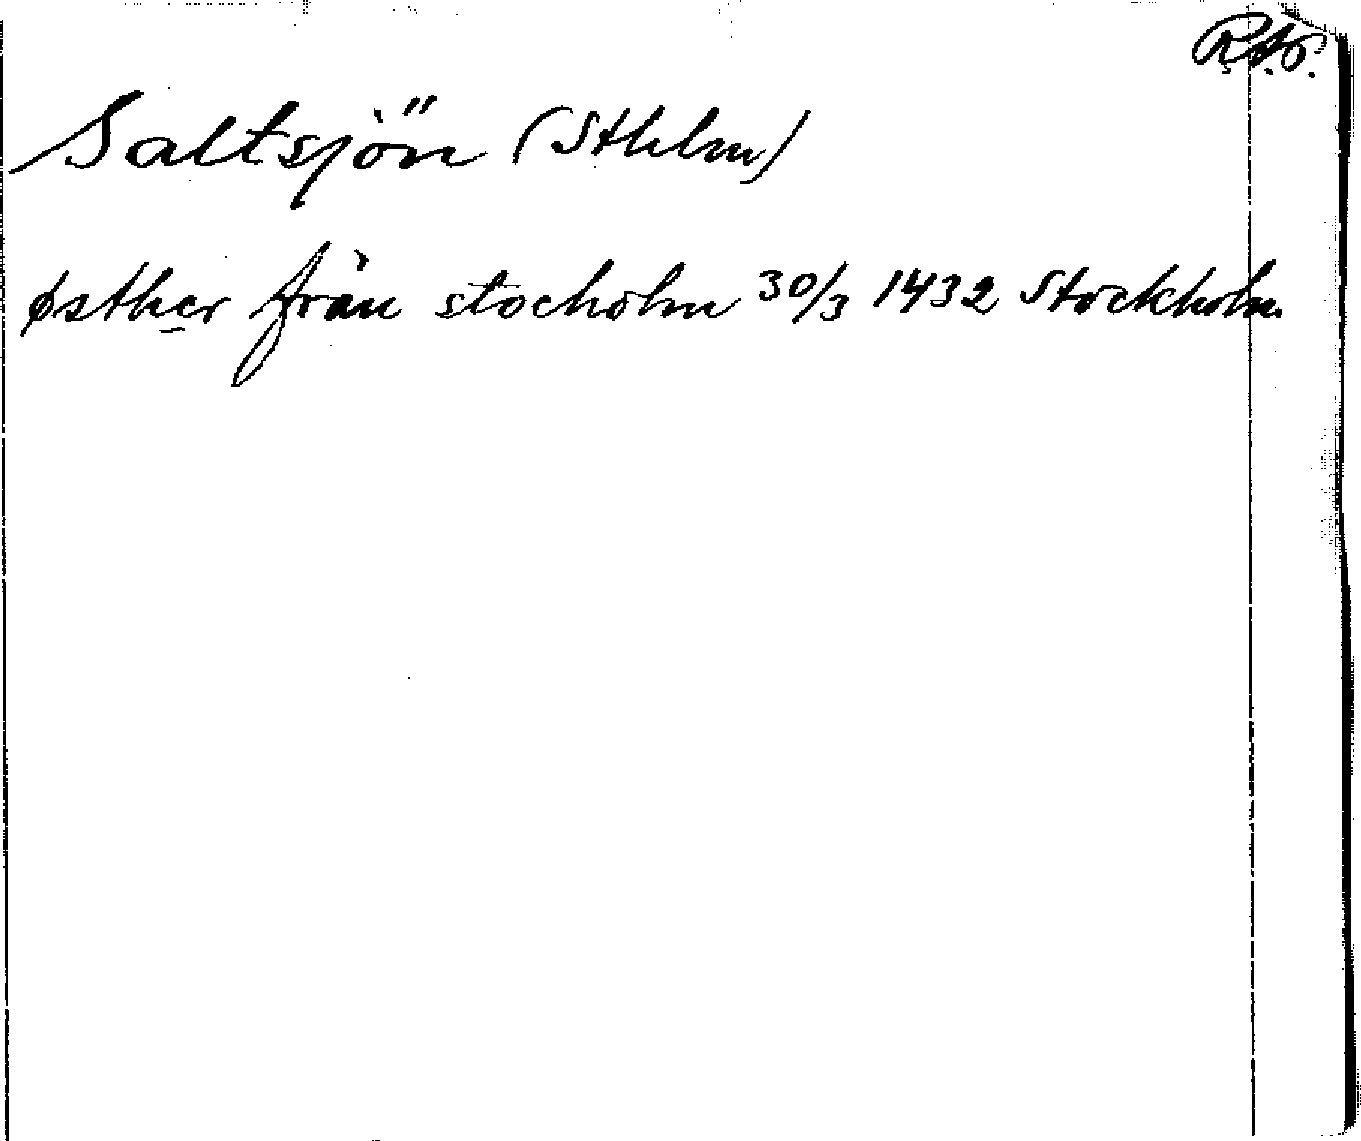 Saltsjön (Sthlm)
østher från stocholm 30/3 1432 Stockholm.